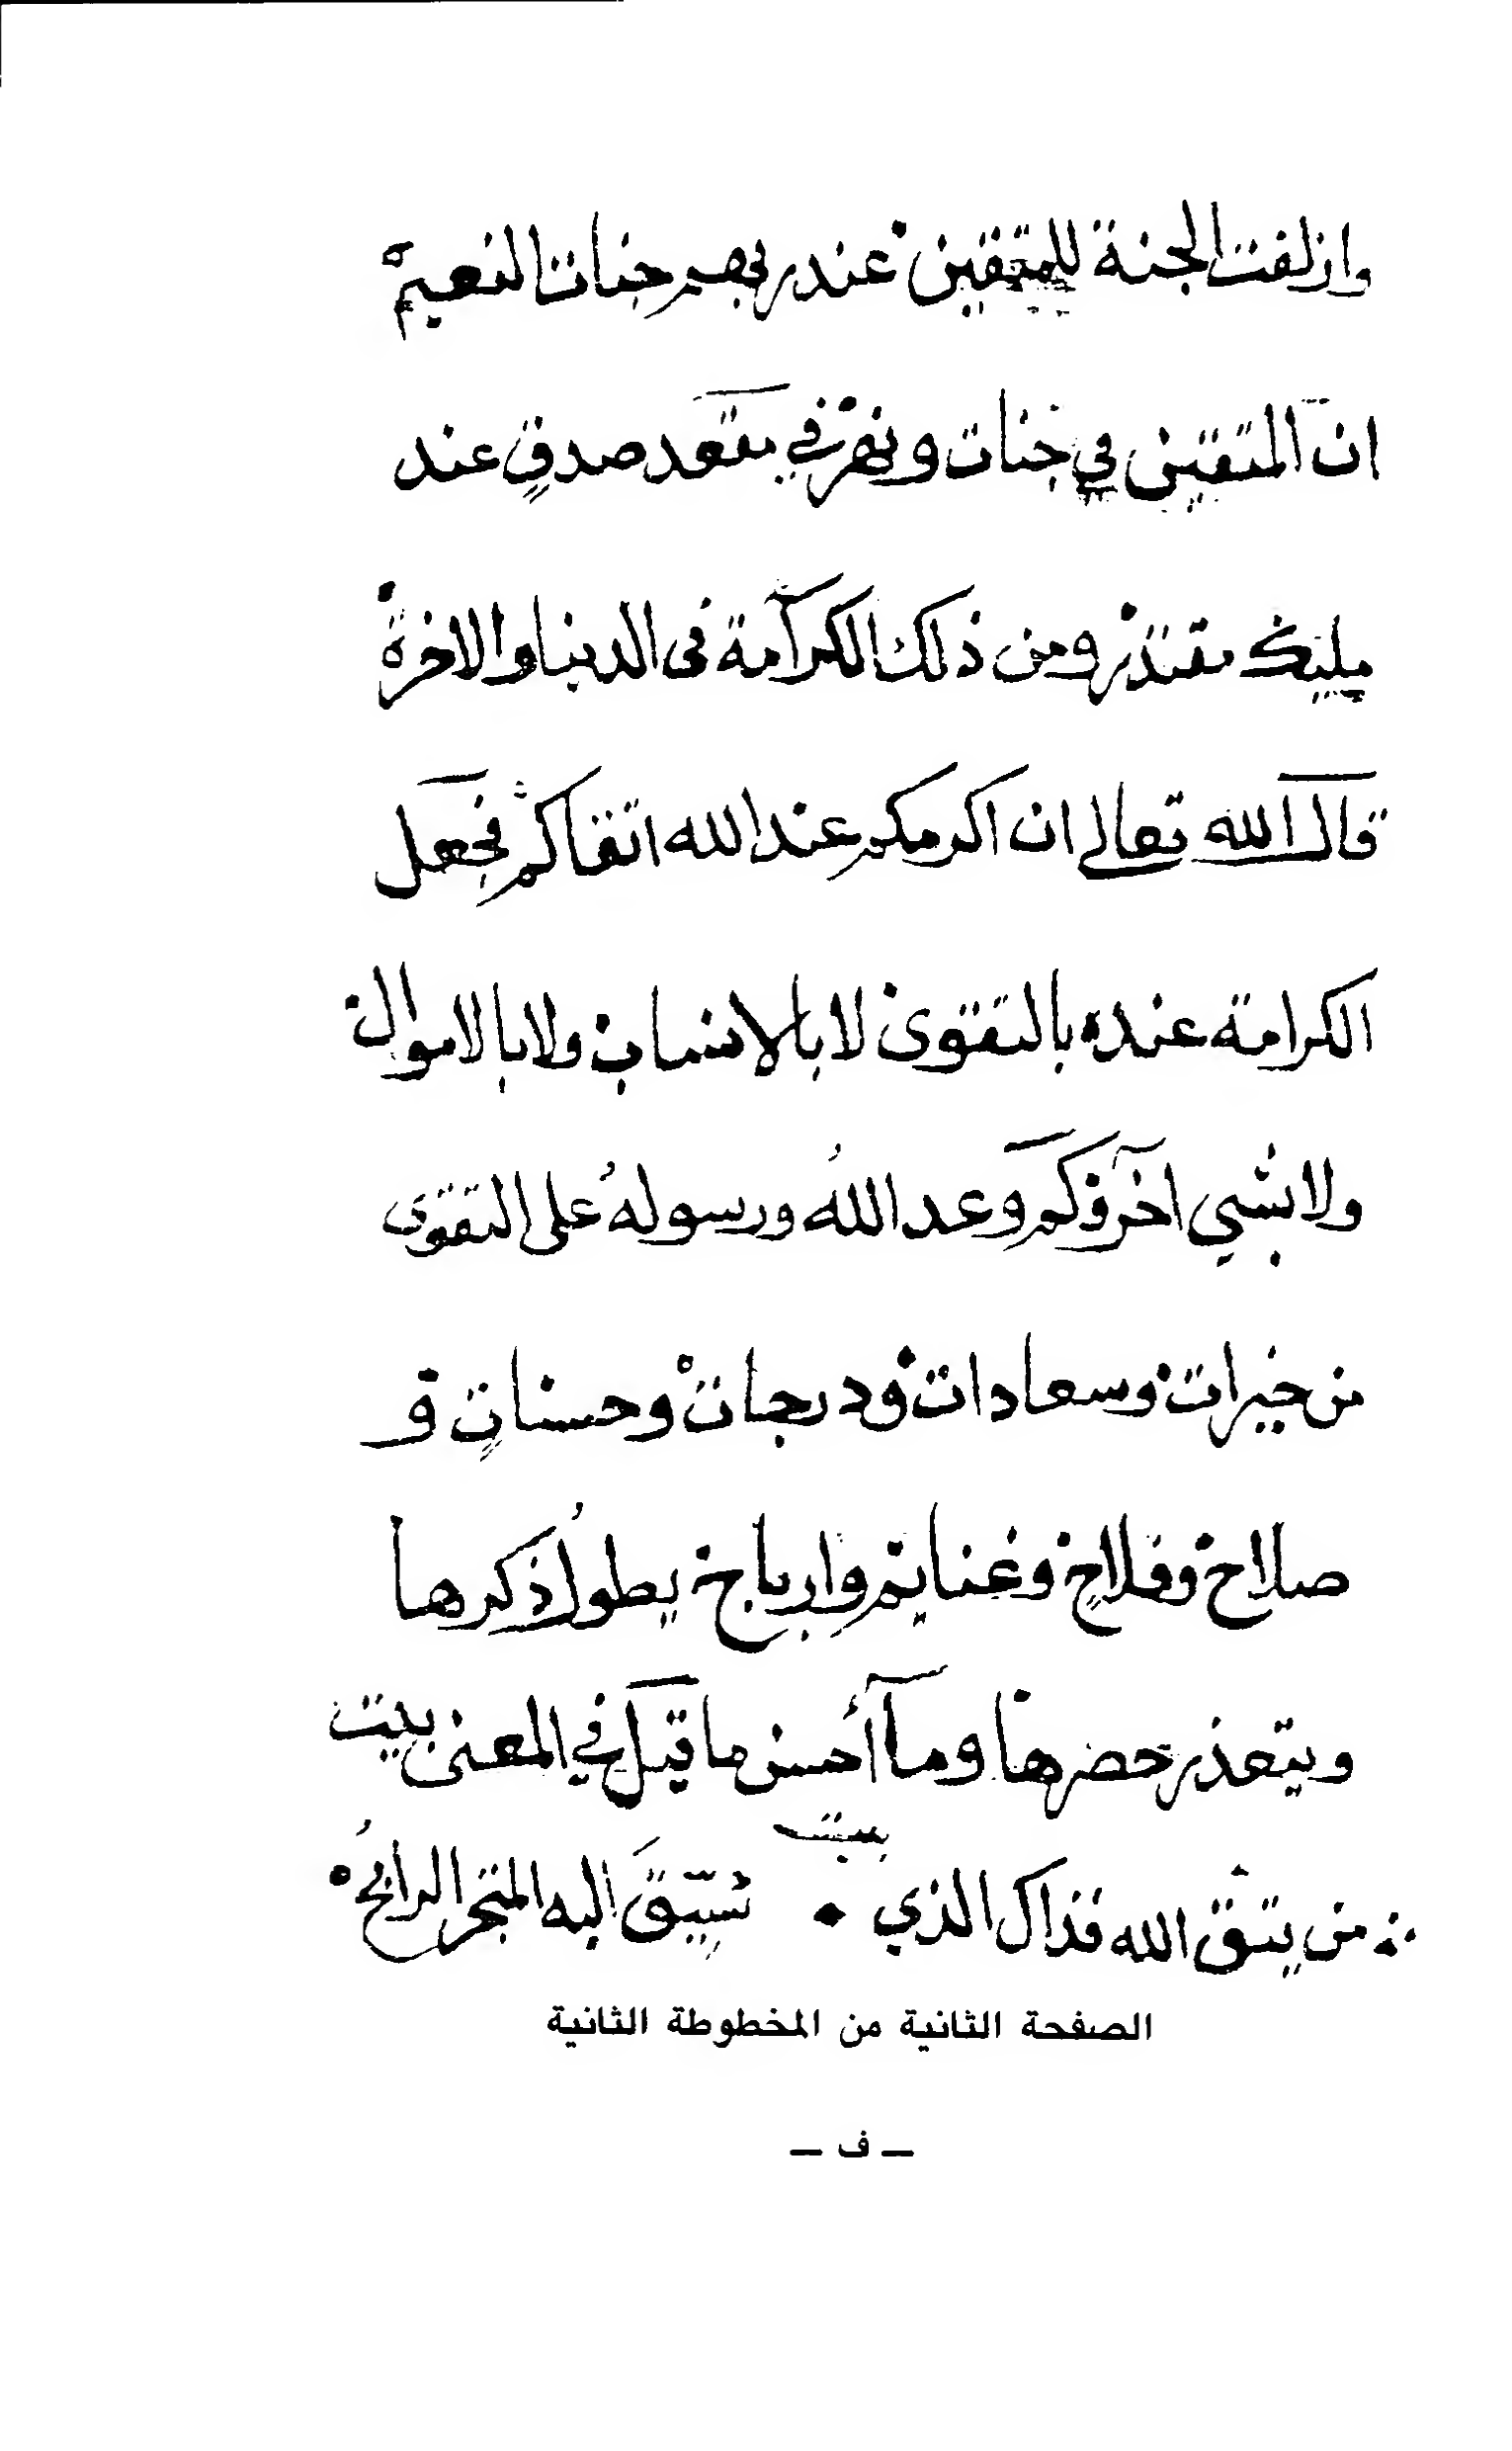 وازلفت الجنة للمتقين عند ربهم جنات النعيم
ان المتقين في جنات ونهر في مقعد صدقٍ عند
مليك مقتدر ومن ذلك الكرامة فى الدنيا والاخرة
قال الله تعالى ان اكرمكم عند الله اتقاكم فجعل
الكرامة عنده بالتقوى لا بالانساب ولا بالاموال
ولا بشي آخر وكم وعد اللهُ ورسولهُ على التقوى
من خيرات وسعادات ودرجات وحسناتٍ و
صلاح وفلاحٍ وغنايم وارباح يطولُ ذكرها
ويتعذر حصرها وما أحسن ما قيل في المعنى بيت
بيت
من يتق الله فذاك الذي • سيق اليه المتجر الرابحُ
الصفحة الثانية من المخطوطة الثانية
ـ ف ـ